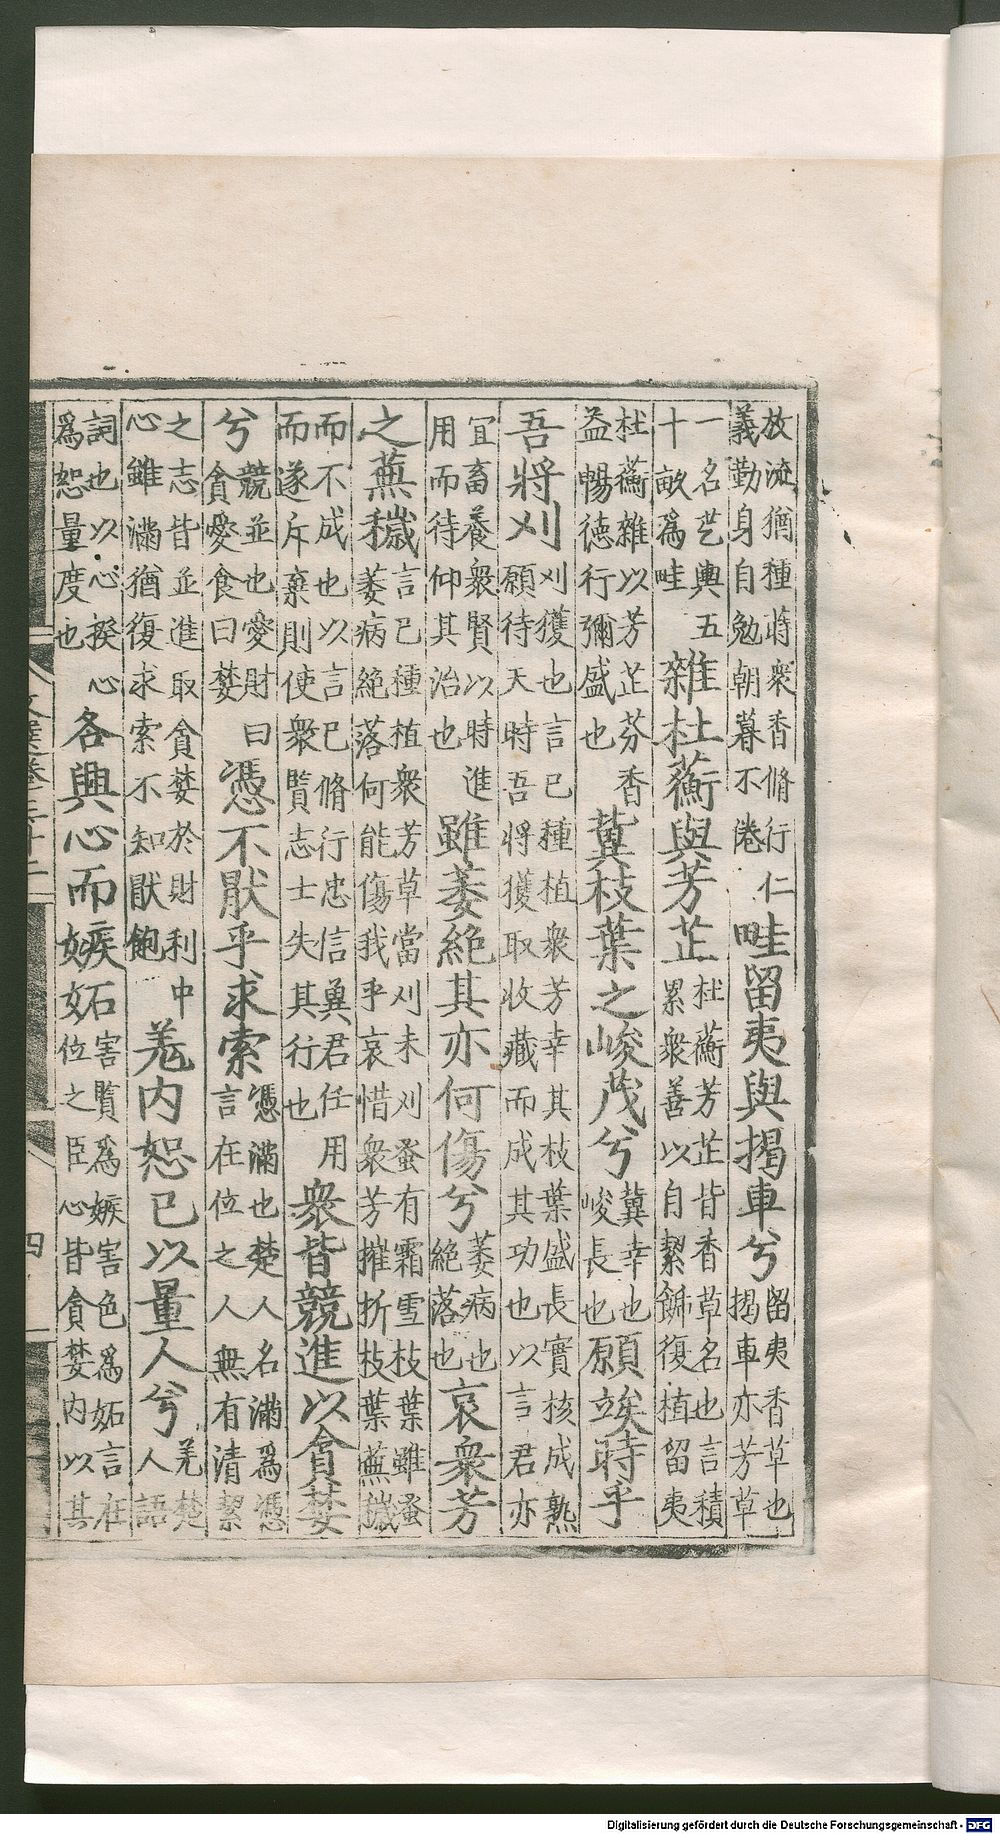 放流猶種蒔衆香脩行仁
義勤身自勉朝暮不倦
畦留夷與揭車兮
留夷香草也
揭車亦芳草
一名艺輿五
十畝爲畦
雜杜蘅與芳芷
杜蘅芳芷皆香草名也言積
累衆善以自絜飾復植留夷
杜蘅雜以芳芷芬香
益暢德行彌盛也
冀枝葉之峻茂兮
冀幸也
峻長也
願竢時乎
吾將刈
刈獲也言己種植衆芳幸其枝葉盛長實核成熟
願待天時吾將獲取收藏而成其功也以言君亦
宜畜養衆賢以時進
用而待仰其治也
雖萎絶其亦何傷兮
萎病也
絶落也
哀衆芳
之蕪穢
言己種植衆芳草當刈未刈蚤有霜雪枝葉雖蚤
萎病絶落何能傷我乎哀惜衆芳摧折枝葉蕪穢
而不成也以言己脩行忠信冀君任用
而遂斥棄則使衆賢志士失其行也
衆皆競進以貪婪
兮
競並也愛財曰
貪愛食曰婪
憑不猒乎求索
憑滿也楚人名滿爲憑
言在位之人無有清絜
之志皆並進取貪婪於財利中
心雖滿猶復求索不知猒飽
羌内恕己以量人兮
羌楚
人語
詞也以心揆心
爲恕量度也
各興心而嫉妬
害賢爲嫉害色爲妬言在
位之臣心皆貪婪内以其
文選卷三十二
四
Digitalisierung gefördert durch die Deutsche Forschungsgemeinschaft - DFG